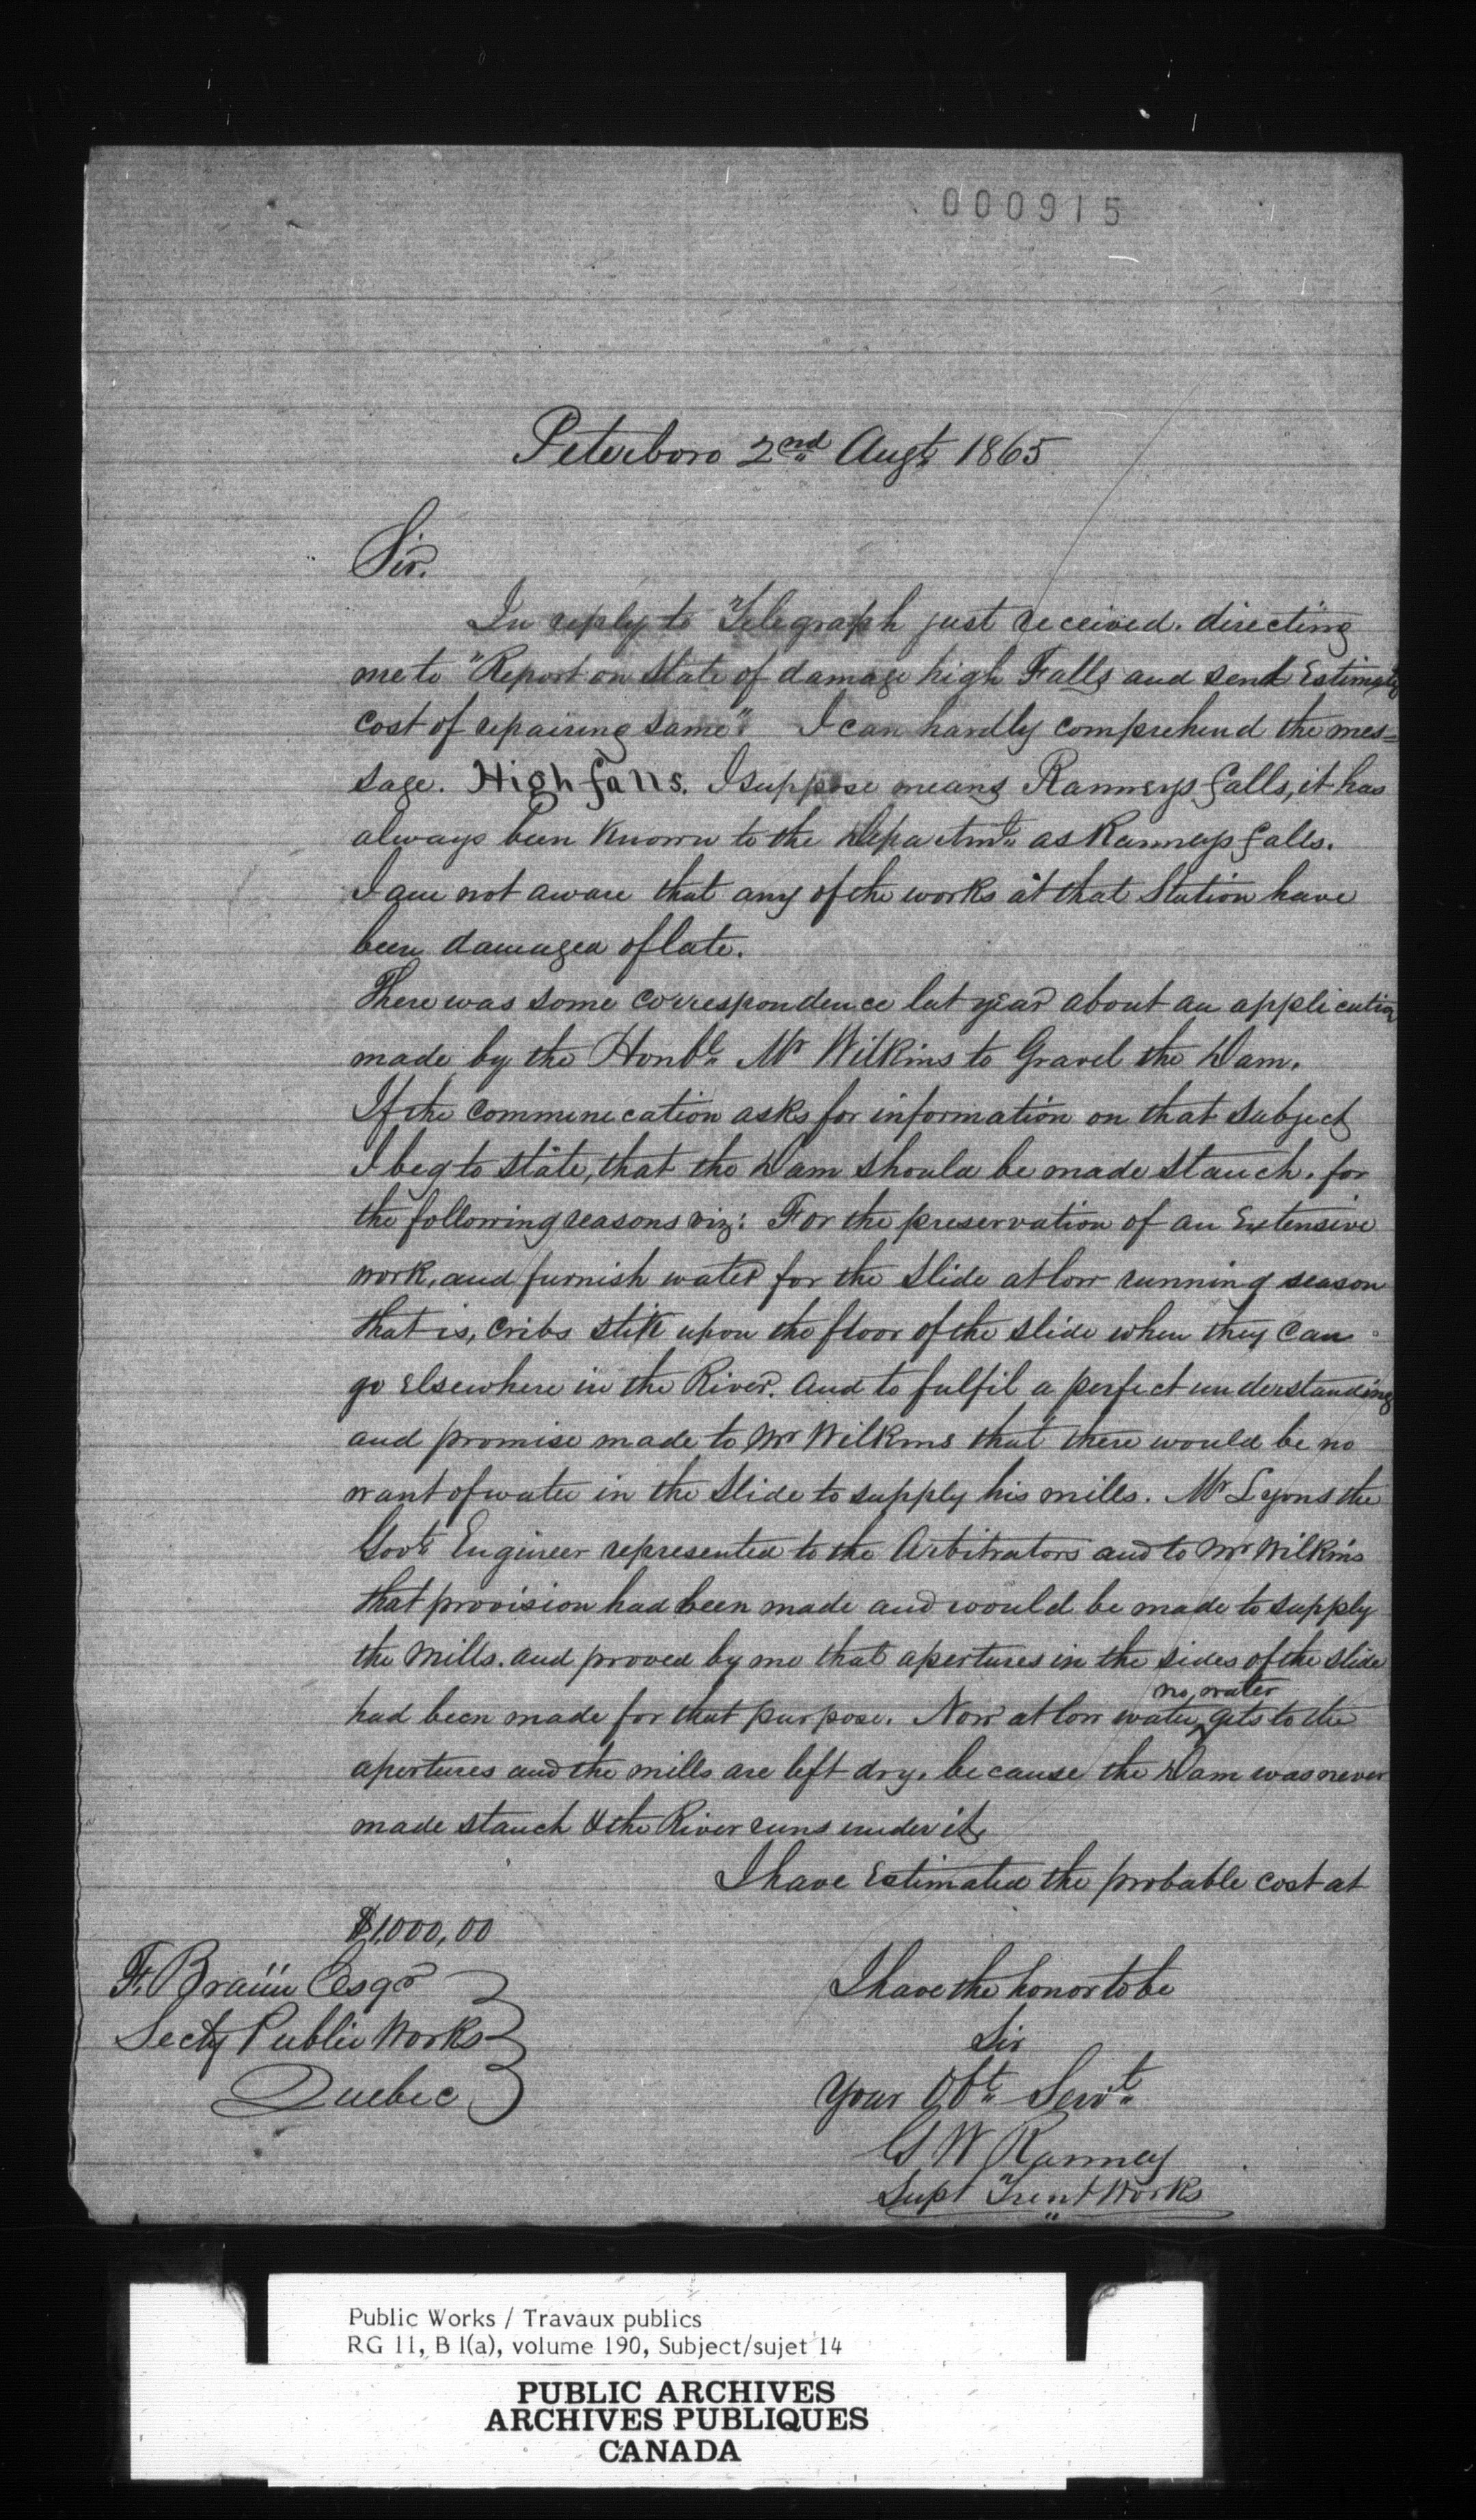 000915
Peterboro 2nd Augt 1865
Sir.
In reply to Telegraph just received. directing
me to "Report on State of damage high Falls and send Estimate
cost of repairing same". I can hardly comprehend the mes=
sage. High falls. I suppose means Ranneys falls, it has
always been Known to the Departmt as Ranneys falls.
I am not aware that any of the works at that Station have
been damaged of late.
There was some correspondence last year about an application
made by the Honble Mr Wilkins to Gravel the Dam.
If the communication asks for information on that subject
I beg to state, that the Dam should be made stauch. for
the following reasons viz: For the preservation of an Extensive
work, and furnish water for the Slide at low running season
that is, cribs stik upon the floor of the slide when they can
go Elsewhere in the River. And to fulfil a perfect understanding
and promise made to Mr Wilkins that there would be no
want of water in the Slide to supply his mills. Mr Lyons the
Govt Engineer represented to the Arbitrators and to Mr Wilkins
that provision had been made and would be made to supply
the Mills. and proved by me that apertures in the sides of the slide
had been made for that purpose. Now at low water ^no water gets to the
apertures and the mills are left dry. because the Dam was never
made stauch & the River runs under it,
I have Estimated the probable cost at
$1,000,00
F. Braün Esqr
Secty Public Works
Quebec
I have the honor to be
Sir
Your Obt Servt
G W Ranney
Supt Trent Works
Public Works / Travaux publics
RG 11, B 1(a), volume 190, Subject/sujet 14
PUBLIC ARCHIVES
ARCHIVES PUBLIQUES
CANADA